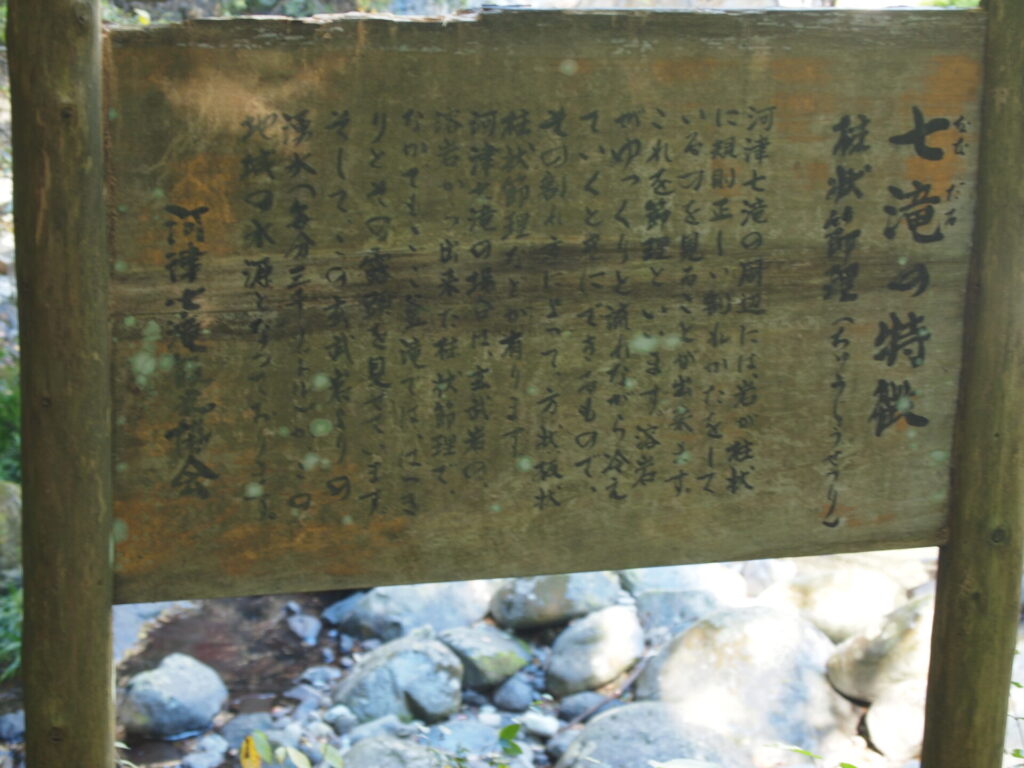 七滝の特徴
なな だる
柱状節理(ちゅうじょうせつり)
河津七滝の周辺には岩が柱状
に規則正しい割れかたをして
いるのを見ることが出来ます。
これを節理といいます。溶岩
がゆっくりと流れながら冷え
ていくときにできるもので、
その割れ方によって方状板状
柱状節理などが有ります
河津七滝の場合は、玄武岩の、
溶岩から出来た柱状節理で、
なかでも 釜滝では、はっき
りとその 見せて います。
そして、この玄武岩よりの
湧水(毎分三千 )が この
地域の水源となっております。
河津七滝 会